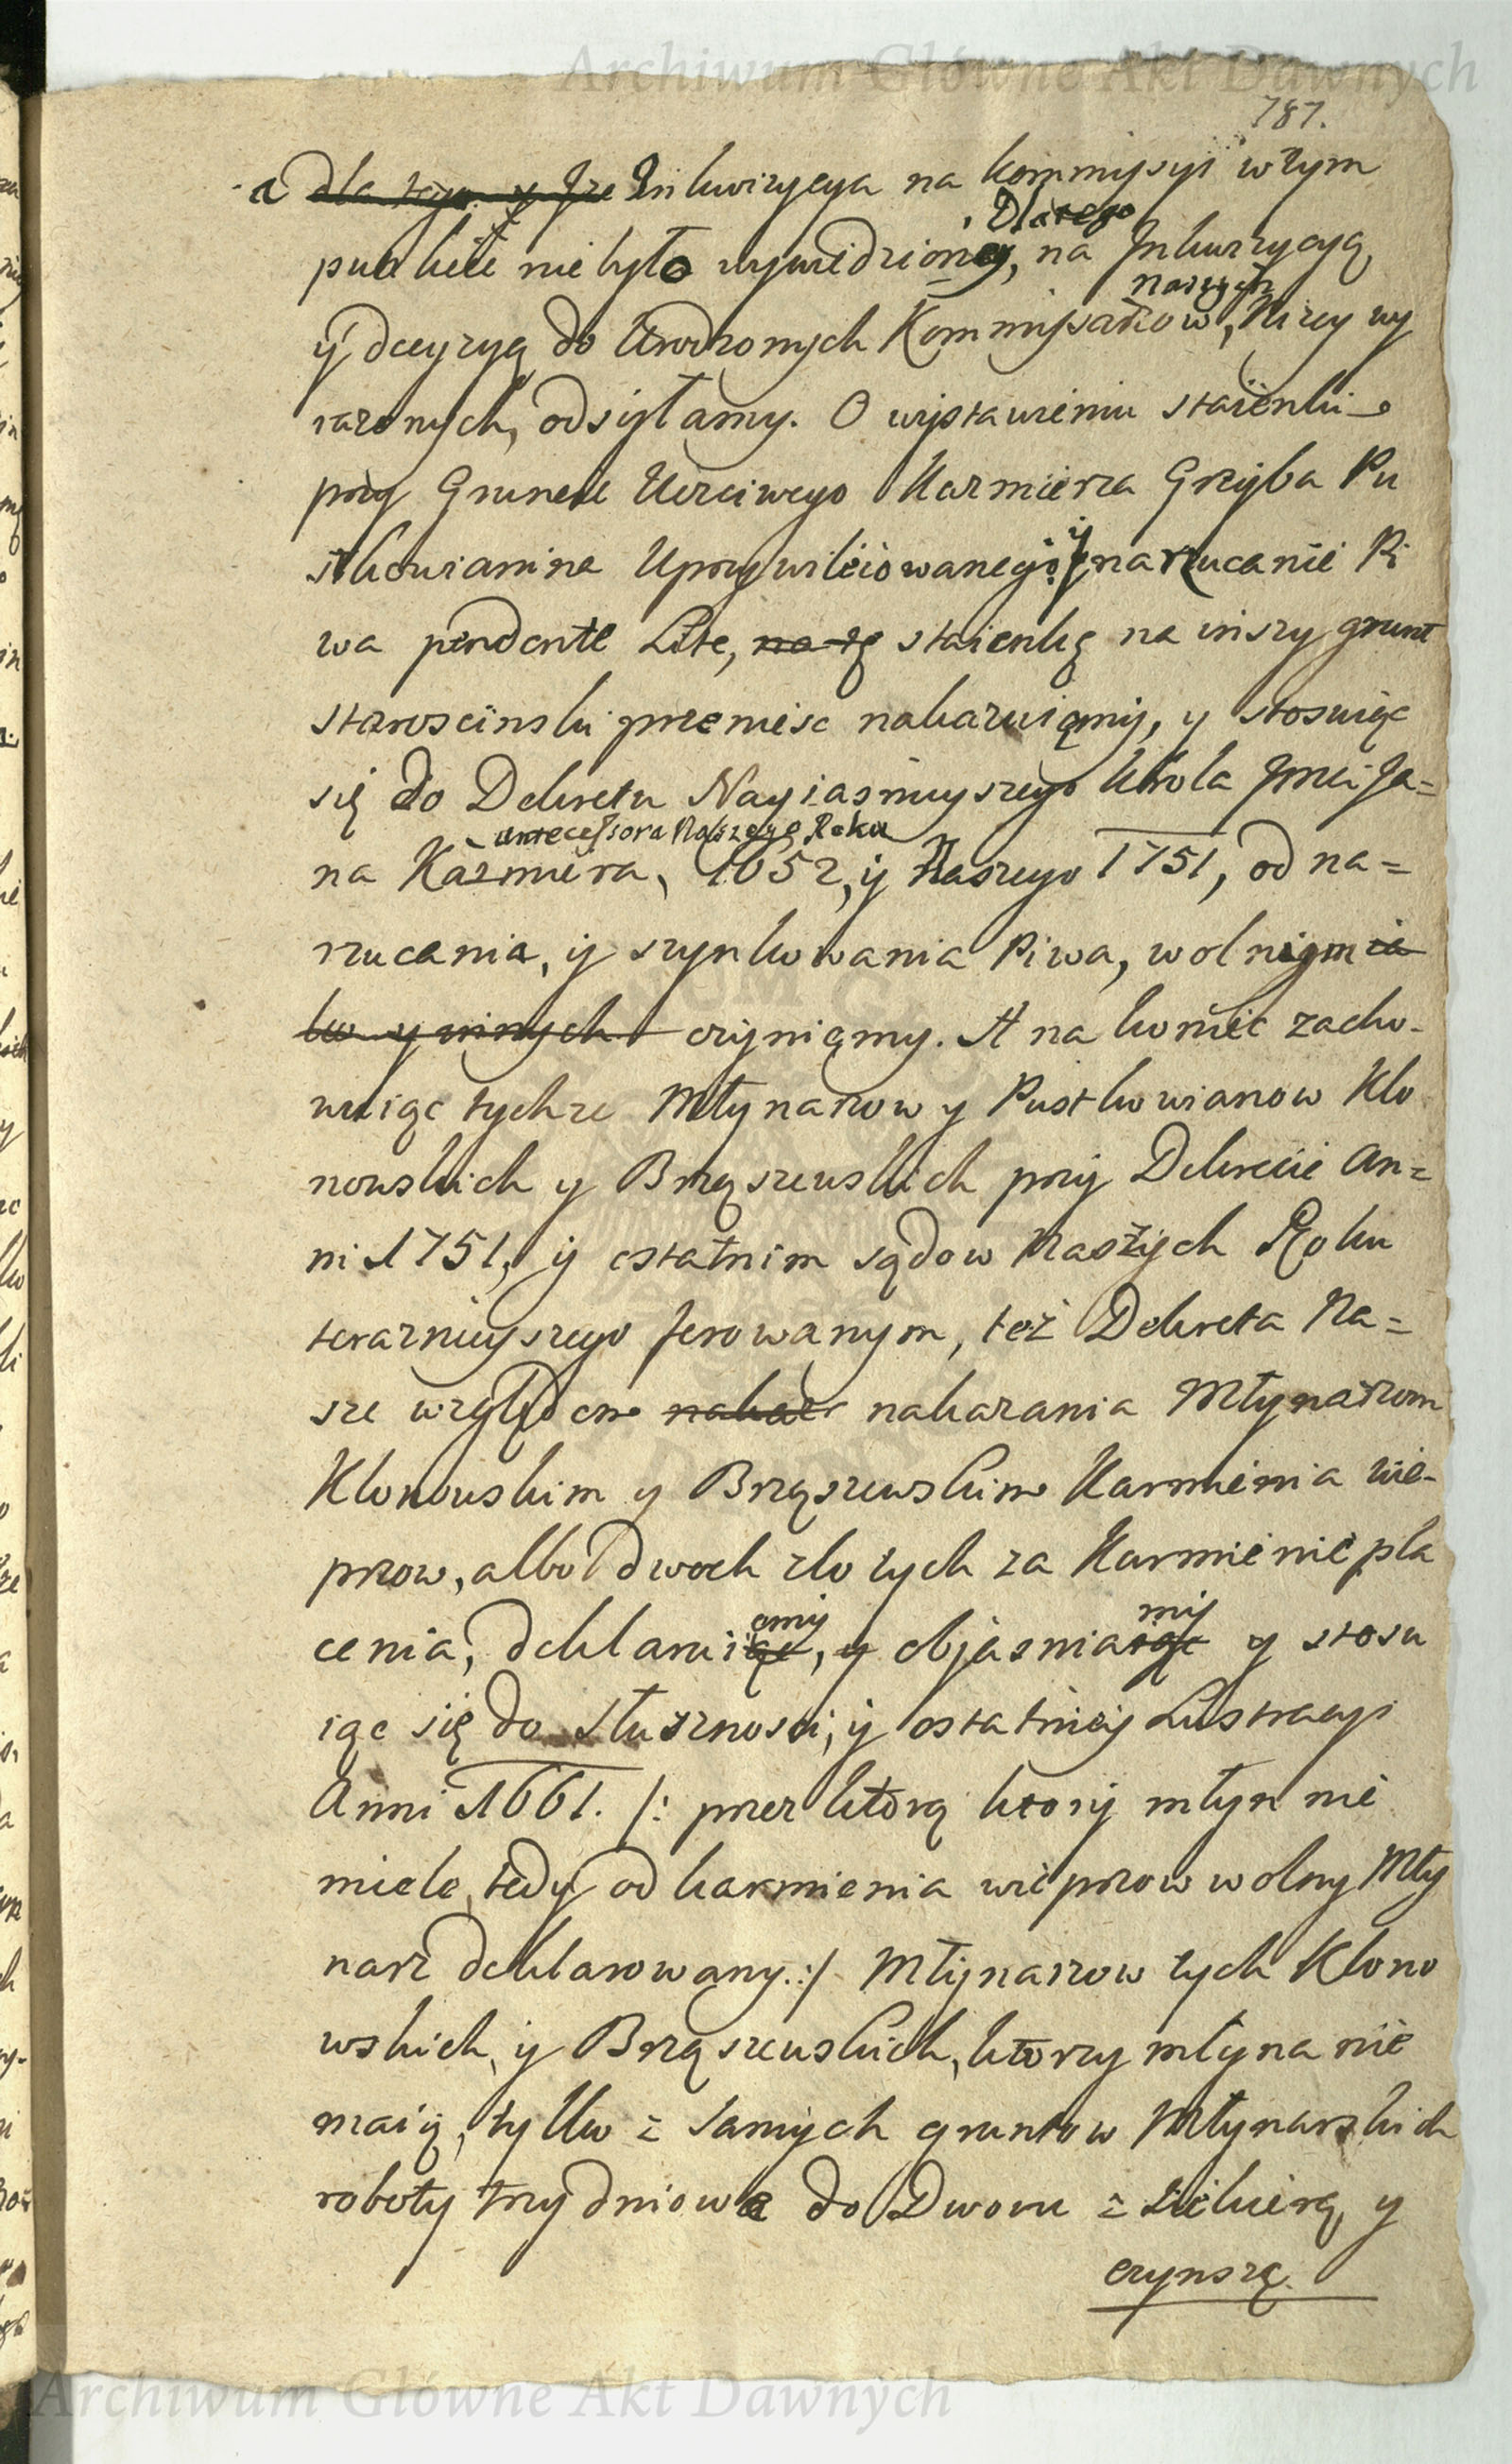 Archiwum Główne Akt Dawnych
787.
a dla tego y że Inkwizycya na kommissyi w tym
Dlatego
punkcie nie było wywiedziona, na Inkwizycyą
naszych
y decyzyą do Urodzonych Kommissarzow, niżey wy
rażonych, odsyłamy. O wystawieniu staienki
przy Gruncie Uczciwego Kazmierza Grzyba Pu
stkowianina Uprzywileiowanego, y narzucanie Pi
wa pendente Lite, na tę staienkę na inszy grunt
starosciński przeniesc nakazuiemy, y stosuiąc
się do Dekretu Nayiasnieyszego Krola Jmci Ja=
antecessora Naszego Roku
na Kazmierza, 1652, y Naszego 1751, od na=
rzucania, y szynkowania Piwa, wolnym ia
ko y innych czyniemy. A na koniec zacho-
wuiąc tychże Młynarzow y Pustkowianow Klo
nowskich y Brząszewskich przy Dekrecie An=
ni 1751, y ostatnim sądow Naszych Roku
teraznieyszego ferowanym, też Dekreta Na=
sze względem nakaz nakazania Młynarzom
Klonowskim y Brząszewskim Karmienia wie-
przow, albo dwoch złotych za Karmienie pła
amy my
cenia, deklaruiąc, y objasniaiąc y stosu
iąc się do słusznosci, y ostatniey Lustracyi
Anni 1661. /: przez ktorą ktory młyn nie
miele, tedy od karmienia wieprzow wolny Mły
narz deklarowany :/ Młynarzow tych Klono
wskich, y Brząszewskich, ktorzy młyna nie
maią, tylko z samych gruntow Młynarskich
roboty trzydniowe do Dworu z siekierą, y
czynszą.
Archiwum Główne Akt Dawnych